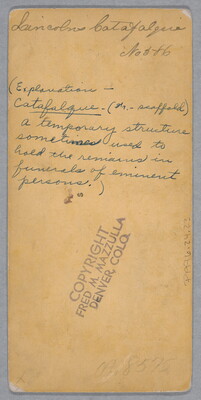 Lincolns Catafalque
No 546
(Explanation —
Catafalque - (Fr. - scaffold)
a temporary structure
sometimes used to
hold the remains in
funerals of eminent
persons.)
COPYRIGHT
FRED M. MAZZULLA
DENVER COLO.